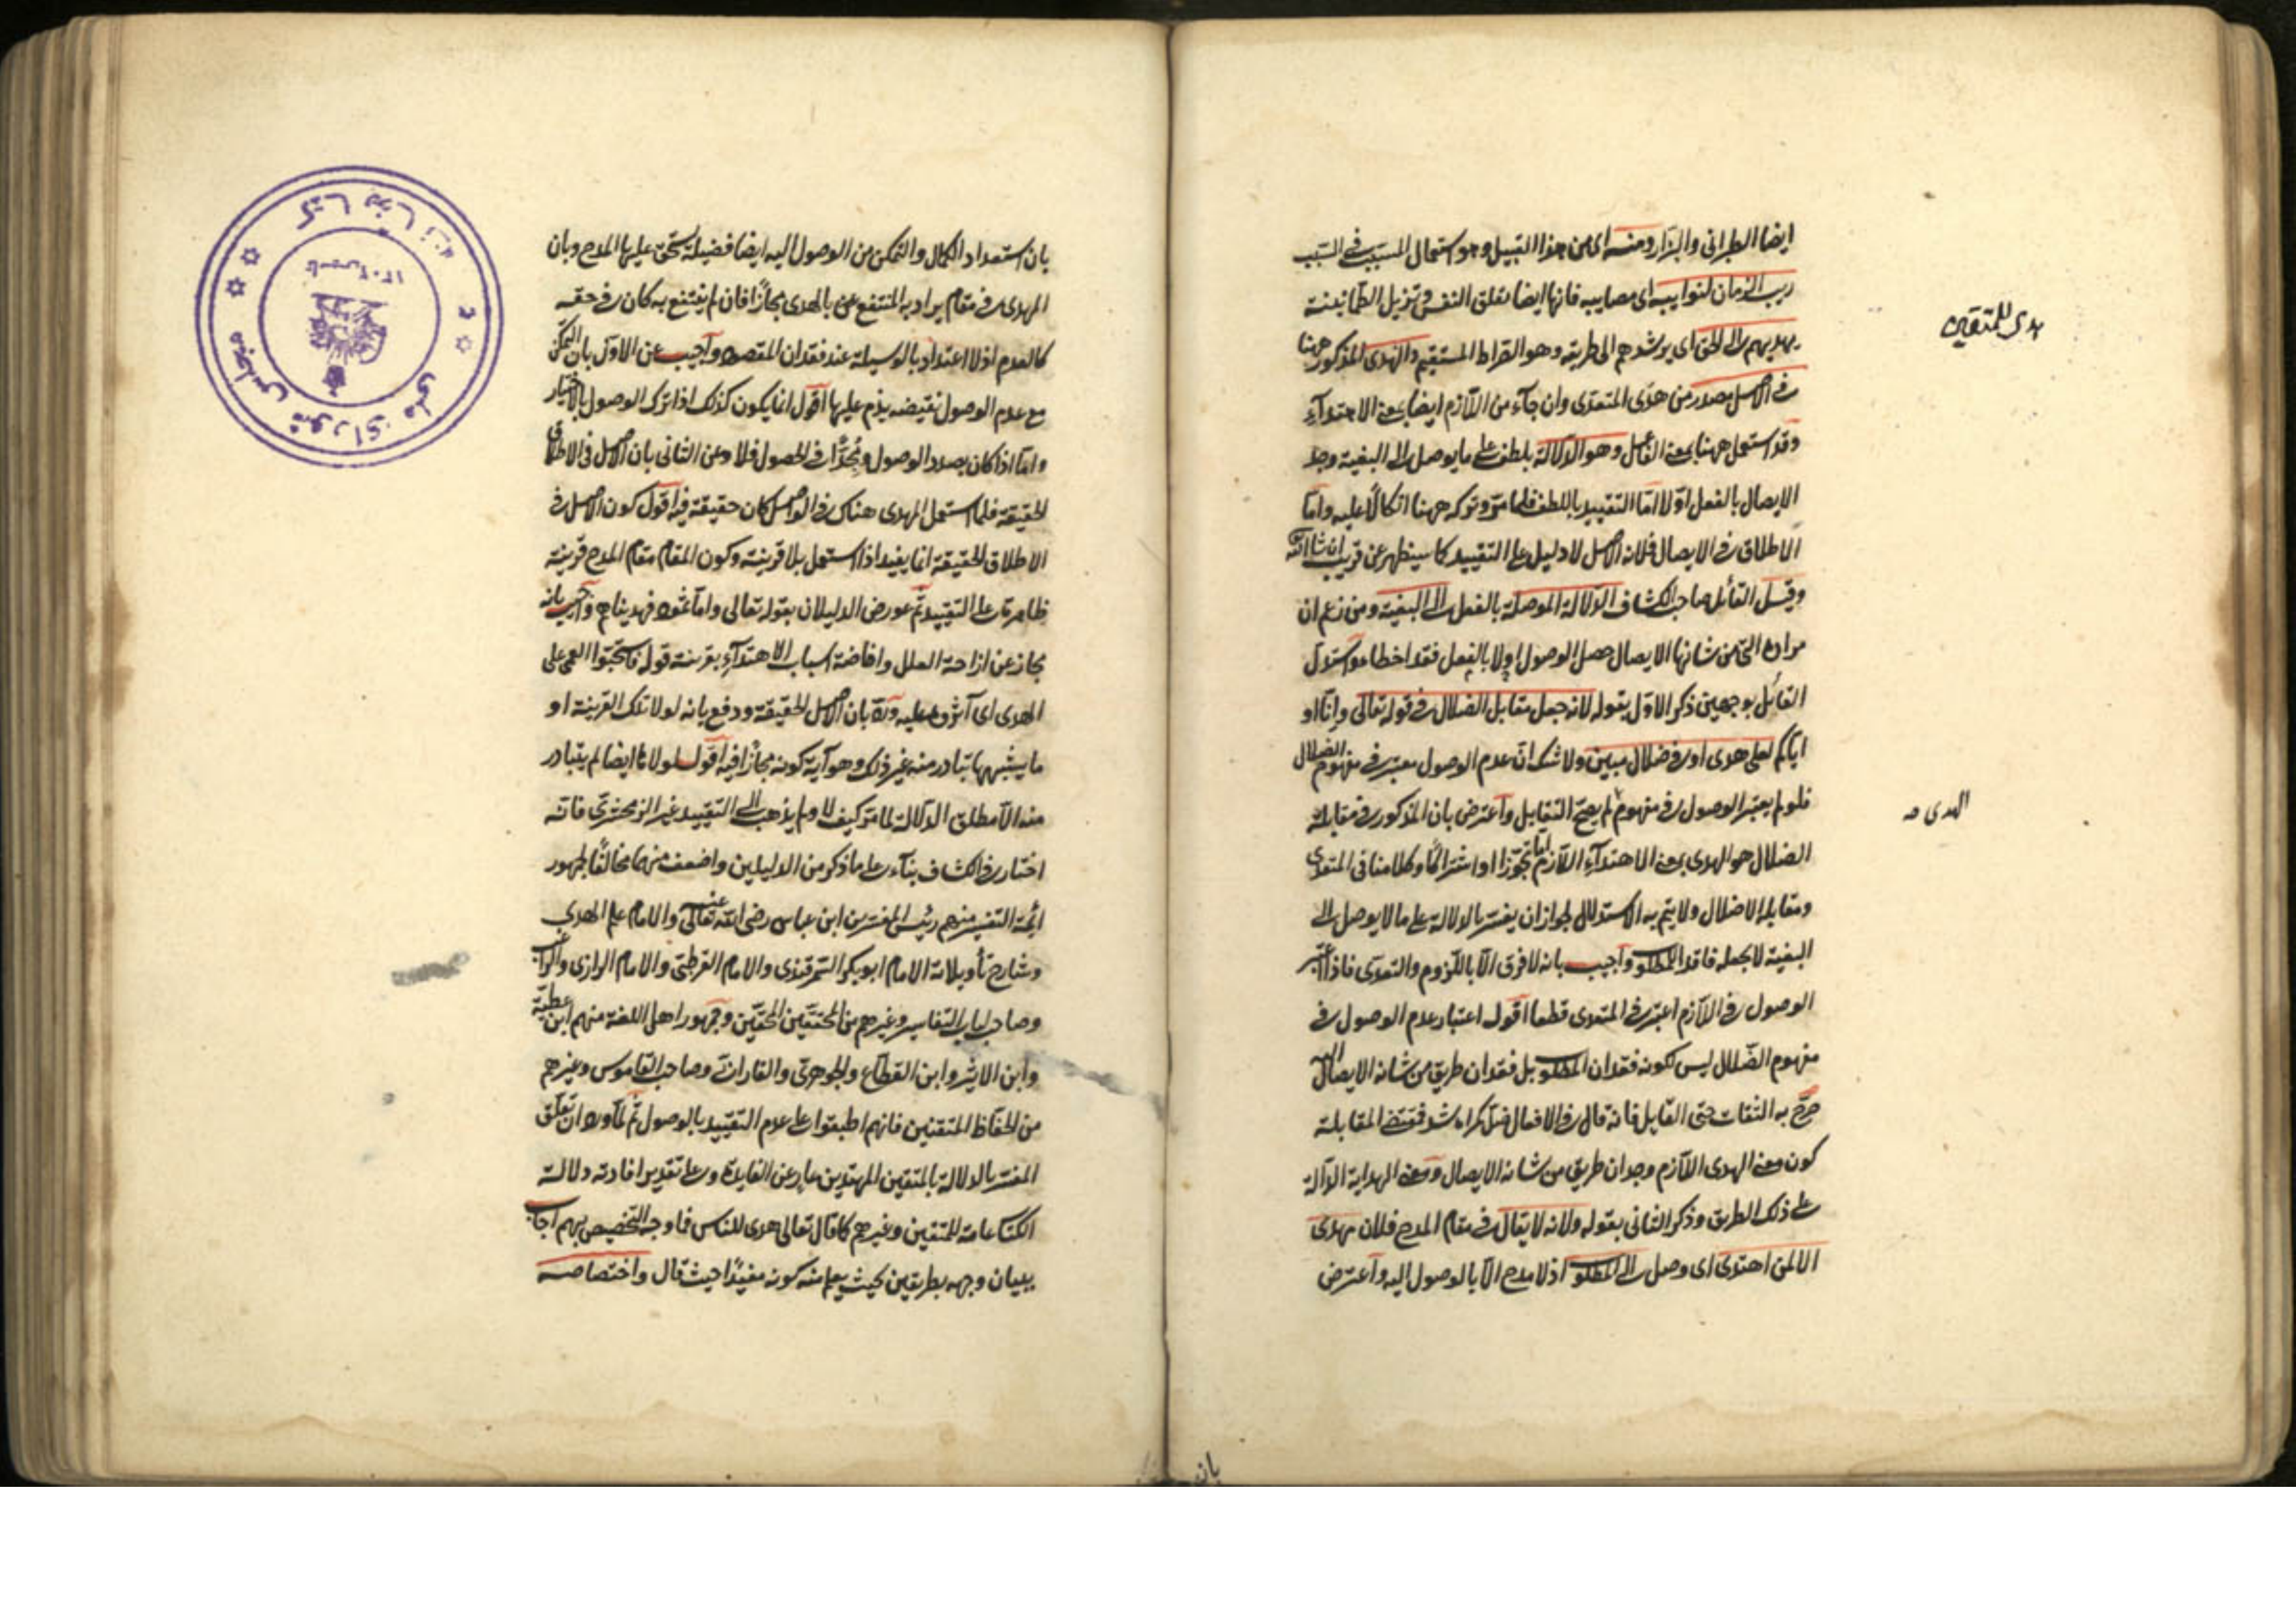 ايضا الطبرانى والبزار ومنه اى من هذا القبيل وهو استعمال المسبب فى السبب
ريب الزمان لنوايبه اى مصايبه فانها ايضا تقلق النفس وتزيل الطمانينة
يهديهم الى الحق اى يرشدهم الى طريقه وهو الصراط المستقيم والهدى المذكور ههنا
هدى للمتقين
فى الاصل مصدر من هدى المتعدى وان جاء من اللازم ايضا بمعنى الاهتداء
وقد استعمل ههنا بمعنى الفاعل وهو الدلالة بلطف على ما يوصل الى البغية وجد
الايصال بالفعل اولا اما التقييد باللطف فلما مر وتركه ههنا اتكالا عليه واما
الاطلاق فى الايصال فلانه الاصل لا دليل على التقييد كما سيظهر عن قريب ان شا الله
وقيل القائل صاحب الكشاف الدلالة الموصلة بالفعل الى البغية ومن زعم ان
مراده التى من شانها الايصال حصل الوصول اولا بالفعل فقد اخطاء واستدل
القائل بوجهين ذكر الاول بقوله لانه جعل مقابل الضلال فى قوله تعالى وانا او
اياكم لعلى هدى او فى ضلال مبين ولا شك ان عدم الوصول معتبر فى مفهوم الضلال
فلو لم يعتبر الوصول فى مفهوم لم يصح التقابل واعترض بان المذكور فى مقابلة
الهدى صه
الضلال هو الهدى بمعنى الاهتداء اللازم اما تجوزا او اشتراكا وكلامنا فى المتعدى
ومقابله الاضلال ولا يتم به الاستدلال لجواز ان يفسر بالدلالة على ما لا يوصل الى
البغية لا بجعله فاقد المطلوب واجيب بانه لا فرق الا باللزوم والتعدى فاذا اعتبر
الوصول فى اللازم اعتبر فى المتعدى قطعا اقول اعتبار عدم الوصول فى
مفهوم الضلال ليس لكونه فقدان المطلوب بل فقدان طريق من شانه الايصال اليه
صرح به الثقات حتى القايل فانه قال فى الافعال ضل كراه شد فمقتضى المقابلة
كون معنى الهدى اللازم وجدان طريق من شانه الايصال ومعنى الهداية الدالة
على ذلك الطريق وذكر الثانى بقوله ولانه لا يقال فى مقام المدح فلان مهدى
الا لمن اهتدى اى وصل الى المطلوب اذ لا مدح الا بالوصول اليه واعترض
بان
بان استعداد الكمال والتمكن من الوصول اليه ايضا فضيلة يستحق عليها المدح وبان
المهدى فى مقام يراد به المنتفع عن بالهدى مجازا فان لم ينتفع به كان فى حقه
كالعدم اذ لا اعتداد بالوسيلة عند فقدان المقصود واجيب عن الاول بان التمكن
مع عدم الوصول نقيضه يذم عليها اقول انما يكون كذلك اذا ترك الوصول بالاختيار
واما اذا كان بصدد الوصول ومجدا فى الحصول فلا وعن الثانى بان الاصل فى الاطلاق
الحقيقة فلما استعمل المهدى هناك فى الواصل كان حقيقة فيه اقول كون الاصل فى
الاطلاق الحقيقة انما يفيد اذا استعمل بلا قرينة وكون المقام مقام المدح قرينة
ظاهرة على التقييد ثم عورض الدليلان بقوله تعالى واما ثمود فهديناهم واجيب بانه
مجاز عن ازاحة العلل وافاضة اسباب الاهتداء بقرينة قوله فاستحبوا العمى على
الهدى اى آثروه عليه ورد بان الاصل الحقيقة ودفع بانه لولا تلك القرينة او
ما يشبهها تبادر منه غير ذلك وهو آية كونه مجازا فيه اقول لولاها ايضا لم يتبادر
منه الا مطلق الدلالة لما مر كيف لا ولم يذهب الى التقييد غير الزمخشرى فانه
اختار فى الكشاف بناء على ما ذكر من الدليلين واضعف منهما مخالفا لجمهور
ائمة التفسير منهم رئيس المفسرين ابن عباس رضى الله تعالى عنه والامام علم الهدى
وشارح تأويلاته الامام ابو بكر السمرقندى والامام القرطبى والامام الرازى والراغب
وصاحب لباب التفاسير وغيرهم من المحققين المحقين وجمهور اهل اللغة منهم ابن عطية
وابن الاثير وابن القطاع والجوهرى والفارابى وصاحب القاموس وغيرهم
من الحفاظ المتقنين فانهم اطبقوا على عدم التقييد بالوصول ثم لما ورد ان تعلق
المفسر بالدلالة بالمتقين المهتدين عار عن الفايدة وعلى تقدير افادته دلالة
الكتاب عامة للمتقين وغيرهم كما قال تعالى هدى للناس فما وجه التخصيص بهم اجاب
ببيان وجهه بطريقين بحيث يعلم منه كونه مفيدا حيث قال واختصاصه
كتابخانه
مجلس شوراى ملى